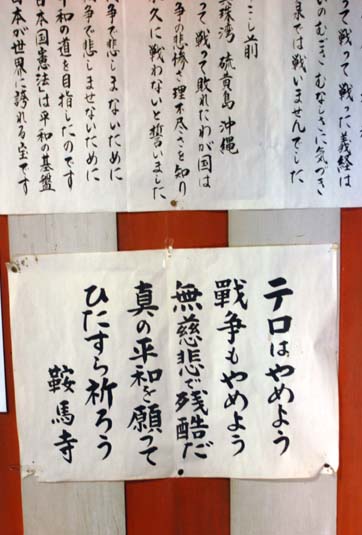 って戦った 義経は
いのむごさ むなしさに気づき
泉では戦いませんでした
こし前
真珠湾 硫黄島 沖縄
って戦って敗れたわが国は
争の悲惨さ理不尽さを知り
久に戦わないと誓いました
争で悲しまないために
争で悲しませないために
和の道を目指したのです
日本国憲法」は平和の基盤
日本が世界に誇れる宝です
テロはやめよう
戰争もやめよう
無慈悲で残酷だ
真の平和を願って
ひたすら祈ろう
鞍馬寺